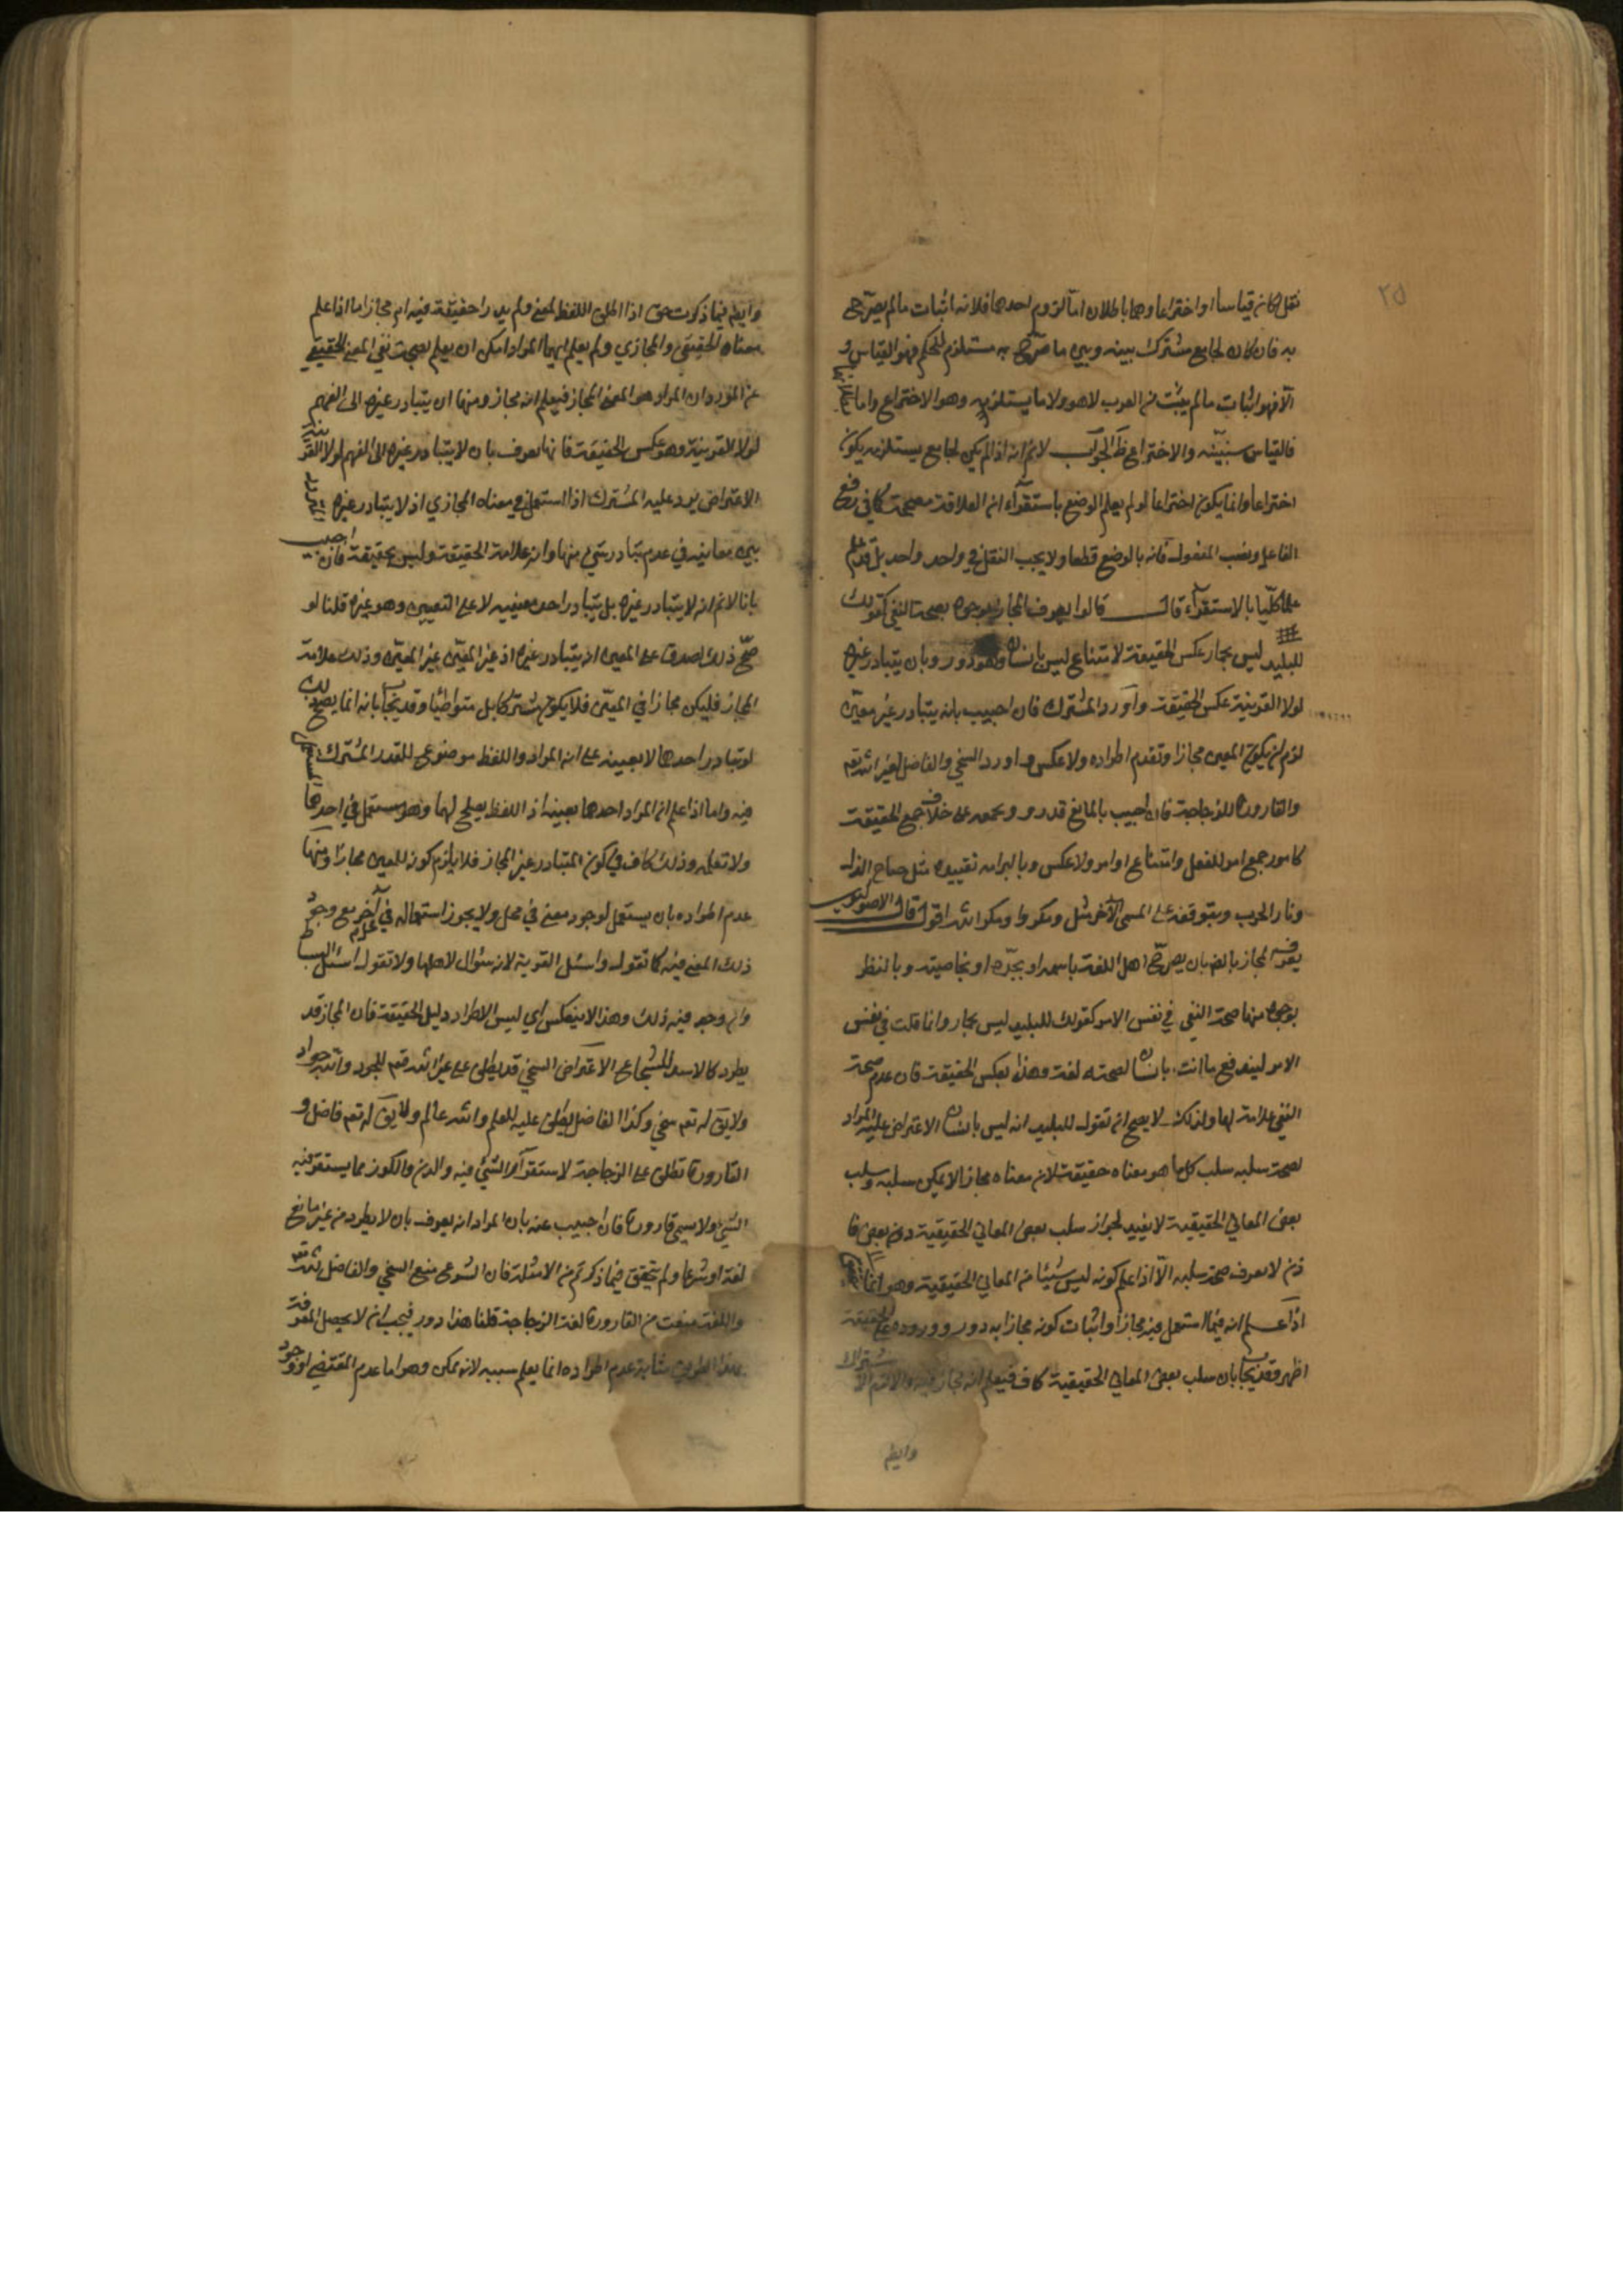 ٢٥
نقل لكان قياسا او اختراعا وهما باطلان اما لزوم احدهما فلانه اثبات ما لم يصرح
به فان كان لجامع مشترك بينه وبين ما صرح به مستلزم للحكم فهو القياس و
الا فهو اثبات ما لم يثبت من العرب لا هو ولا ما يستلزمه وهو الاختراع واما
فالقياس سنبينه والاختراع ظ الجواب لا نم انه اذا لم يكن لجامع يستلزمه يكون
اختراعا وانما يكون اختراعا لو لم يعلم الوضع باستقراء ان العلاقة مصححة كما في رفع
الفاعل ونصب المفعول فانه بالوضع قطعا ولا يجب النقل في واحد واحد بل قد علم
علما كليا بالاستقراء قال قالوا يعرف المجاز بوجوه بصحة النفي كقولك
للبليد ليس بحمار عكس الحقيقة لامتناع ليس بانسان وهو دور وبان يتبادر غيره
لولا القرينة عكس الحقيقة واورد المشترك فان اجيب بانه يتبادر غير معين
لزم ان يكون المعين مجازا وتقدم اطراده ولا عكس واورد السخي والفاضل لغير الله تعم
والقارورة للزجاجة فان اجيب بالمانع فدور وبجمعه على خلاف جمع الحقيقة
كامور جمع امر للفعل وامتناع اوامر ولا عكس وبالتزام تقييده مثل جناح الذل
ونار الحرب وبتوقفه على المسمى الآخر مثل ومكروا ومكر الله اقول قال الاصوليون
يعرف المجاز بالضرورة بان يصرح اهل اللغة باسمه او بحده او بخاصيته وبالنظر
بوجوه منها صحة النفي في نفس الامر كقولك للبليد ليس بحمار وانما قلت في نفس
الامر ليندفع ما انت بانسان لصحته لغة وهذا بعكس الحقيقة فان عدم صحة
النفي علامة لها ولذلك لا يصح ان تقول للبليد انه ليس بانسان الاعتراض عليه المراد
بصحة سلبه سلب كل ما هو معناه حقيقة لان معناه مجازا لا يمكن سلبه وسلب
بعض المعاني الحقيقية لا يفيد لجواز سلب بعض المعاني الحقيقية دون بعض فا
ذن لا يعرف صحة سلبه الا اذا علم كونه ليس شيئا من المعاني الحقيقية وهو انما
اذا علم انه فيما استعمل فيه مجازا واثبات كونه مجازا به دور ووروده على الحقيقة
اظهر وقد يجاب بان سلب بعض المعاني الحقيقية كاف فيعلم انه مجاز فيه والا لزم الاشتراك
وايضا
وايضا فيما ذكرت حق اذا اطلق اللفظ لمعنى ولم يدر احقيقة فيه ام مجاز اما اذا علم
معناه الحقيقي والمجازي ولم يعلم ايهما المراد امكن ان يعلم بصحة نفي المعنى الحقيقي
عن المورد ان المراد هو المعنى المجاز فيعلم انه مجاز ومنها ان يتبادر غيره الى الفهم
لولا القرينة وهو عكس الحقيقة فانها تعرف بان لا يتبادر غيره الى الفهم لولا القرينة
الاعتراض يرد عليه المشترك اذا استعمل في معناه المجازي اذ لا يتبادر غيره
بين معانيه في عدم تبادر شيء منها وانه علامة الحقيقة وليس بحقيقة فان اجيب
بانا لا نم انه لا يتبادر غيره بل يتبادر احد معنييه لا على التعيين وهو غيره قلنا لو
صح ذلك لصدق على المعين انه يتبادر غيره اذ غير المعين غير المعين وذلك علامة
المجاز فليكن مجازا في المعين فلا يكون مشتركا بل متواطئا وقد يجاب بانه انما يصح ذلك
لو تبادر احدهما لا بعينه على انه المراد واللفظ موضوع للقدر المشترك
فيه واما اذا علم ان المراد احدهما بعينه اذ اللفظ يصلح لهما وهو مستعمل في احدهما
ولا نعلمه وذلك كاف في كون المتبادر غير المجاز فلا يلزم كونه للمعين مجازا ومنها
عدم اطراده بان يستعمل لوجود معنى في محل ولا يجوز استعماله في آخر مع وجود
ذلك المعنى فيه كما تقول واسئل القرية لانه سؤال لاهلها ولا تقول اسئل البساط
وان وجد فيه ذلك وهذا لا ينعكس اي ليس الاطراد دليل الحقيقة فان المجاز قد
يطرد كالاسد للشجاع الاعتراض السخي قد يطلق على غير الله تعم للجود والله جواد
ولا يق له تعم سخي وكذا الفاضل يطلق عليه للعلم والله عالم ولا يق له تعم فاضل و
القارورة تطلق على الزجاجة لاستقرار الشيء فيه والدن والكوز مما يستقر فيه
الشيء ولا يسمى قارورة فان اجيب عنه بان المراد انه يعرف بان لا يطرد من غير مانع
لغة او شرعا ولم يتحقق فيما ذكرتم من الامثلة فان الشرع منع السخي والفاضل لله تعم
واللغة منعت من القارورة لغير الزجاجة قلنا هذا دور فيجب ان لا يحصل المعرفة
بهذا الطريق بيانه عدم اطراده انما يعلم بسببه لانه ممكن وهو اما عدم المقتضي او وجود